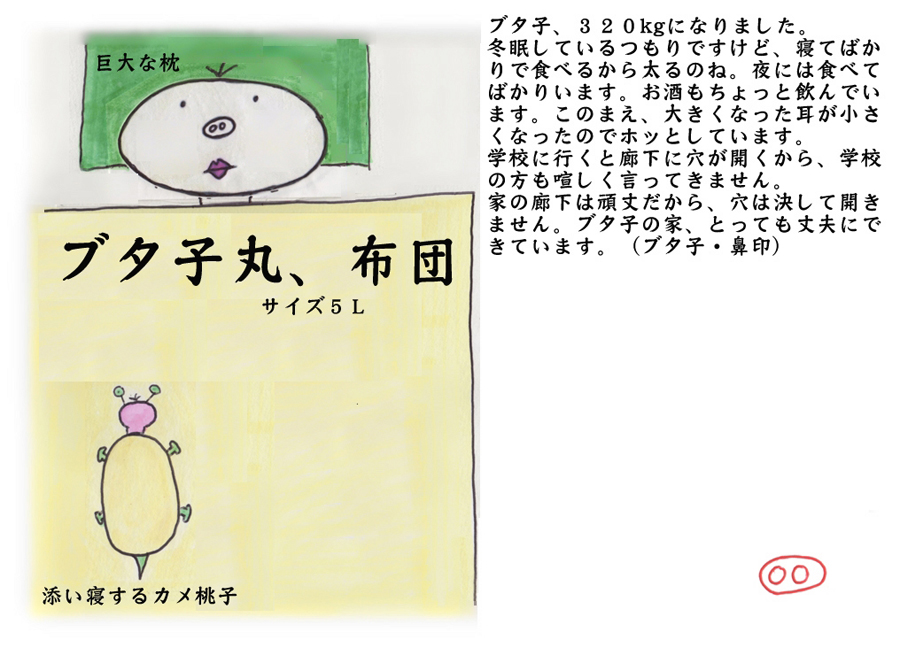 巨大な枕
ブタ子丸、布団
サイズ５Ｌ
添い寝するカメ桃子
ブタ子、３２０kgになりました。
冬眠しているつもりですけど、寝てばか
りで食べるから太るのね。夜には食べて
ばかりいます。お酒もちょっと飲んでい
ます。このまえ、大きくなった耳が小さ
くなったのでホッとしています。
学校に行くと廊下に穴が開くから、学校
の方も喧しく言ってきません。
家の廊下は頑丈だから、穴は決して開き
ません。ブタ子の家、とっても丈夫にで
きています。（ブタ子・鼻印）